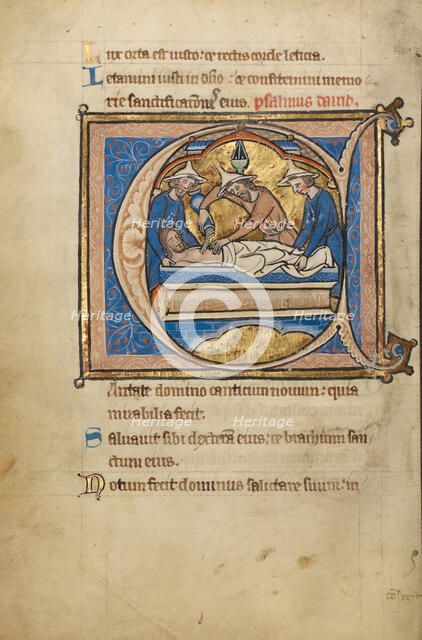 Lux orta est iusto: et rectis corde leticia.
Letamini iusti in dño: et confitemini memo
rie sanctificationis eius. psalmus david.
Cantate domino canticum novum: quia
mirabilia fecit.
Saluavit sibi dextera eius: et brachium san
ctum eius.
Notum fecit dominus salutare suum: in
Heritage
Heritage
Heritage
Heritage
Heritage